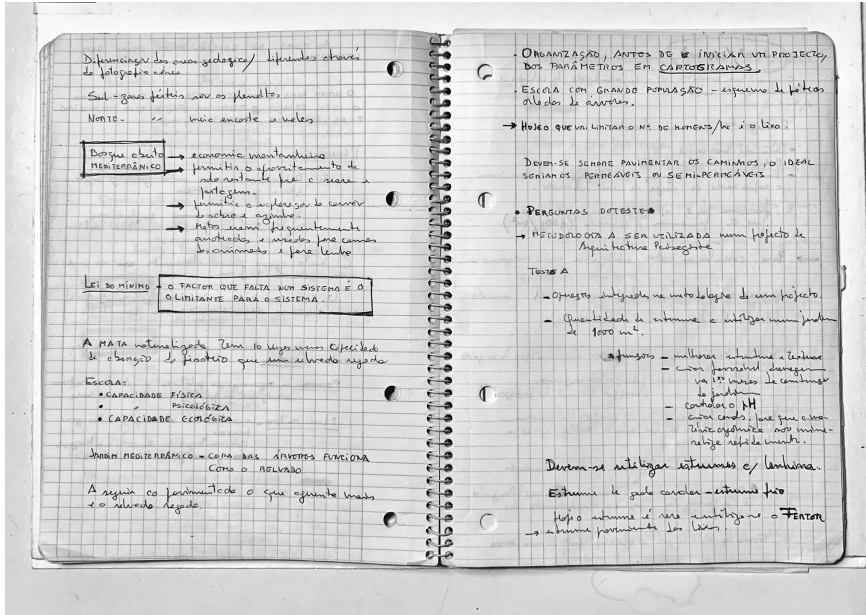 Diferenciação das áreas geológica/ diferentes através
de fotografia aérea
Sul - zonas férteis são os planaltos
NORTE - " meia encosta e vales
Bosque aberto → economia montanheira
MEDITERRÂNICO → permitia o aproveitamento do
solo restante para a seara e
pastagem.
→ permitia a exploração do carvão
de sobro e azinho.
→ Matos eram frequentemente
arroteados e usados para camas
dos animais e para lenha
LEI DO MÍNIMO - O FACTOR QUE FALTA NUM SISTEMA É O
O LIMITANTE PARA O SISTEMA.
A MATA naturalizada tem 10 vezes menos capacidade
de absorção de que um relvado regado
ESCOLA:
• CAPACIDADE FÍSICA
• " PSICOLÓGIZA
• CAPACIDADE ECOLÓGICA
JARDIM MEDITERRÂNICO - COPA DAS ÁRVORES FUNCIONA
COMO O RELVADO
A seguir ao pavimentado o que aguenta mais
é o relvado regado.
- ORGANIZAÇÃO, ANTES DE INICIAR UM PROJECTO,
DOS PARÂMETROS EM CARTOGRAMAS.
- ESCOLA COM GRANDE POPULAÇÃO - esquema de páteos
orlados de árvores.
→ HOJE O QUE VAI LIMITAR O Nº. DE HOMENS/ha é o lixo.
DEVEM-SE SEMPRE PAVIMENTAR OS CAMINHOS, O IDEAL
SERIAM OS PERMEÁVEIS OU SEMI-PERMEÁVEIS
• PERGUNTAS DO TESTE •
→ METODOLOGIA A SER UTILIZADA num projecto de
Arquitectura Paisagista
TESTE A
- Operações integradas na metodologia de um projecto.
- Quantidade de estrume a utilizar num jardim
de 1000 m².
• funções - melhorar estrutura e textura
- criar possível drenagem
nos 1ºs meses de construção
do jardim
- controlar o pH
- criar conds. para que a ma-
téria orgânica não mine-
ralize rapidamente.
Devem-se utilizar estrumes c/ lenhina.
Estrume de gado cavalar - estrume frio
Hoje o estrume é raro e utiliza-se o FERTOR
→ estrume proveniente dos lixos.